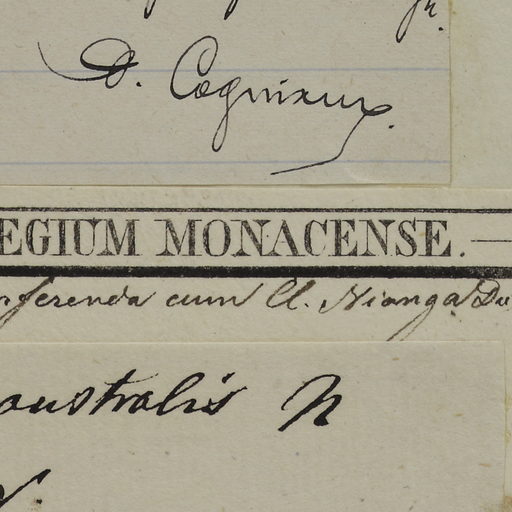 D. Cogniaux.
EGIUM MONACENSE.
nferenda cum Cl. Nianga Du
australis N